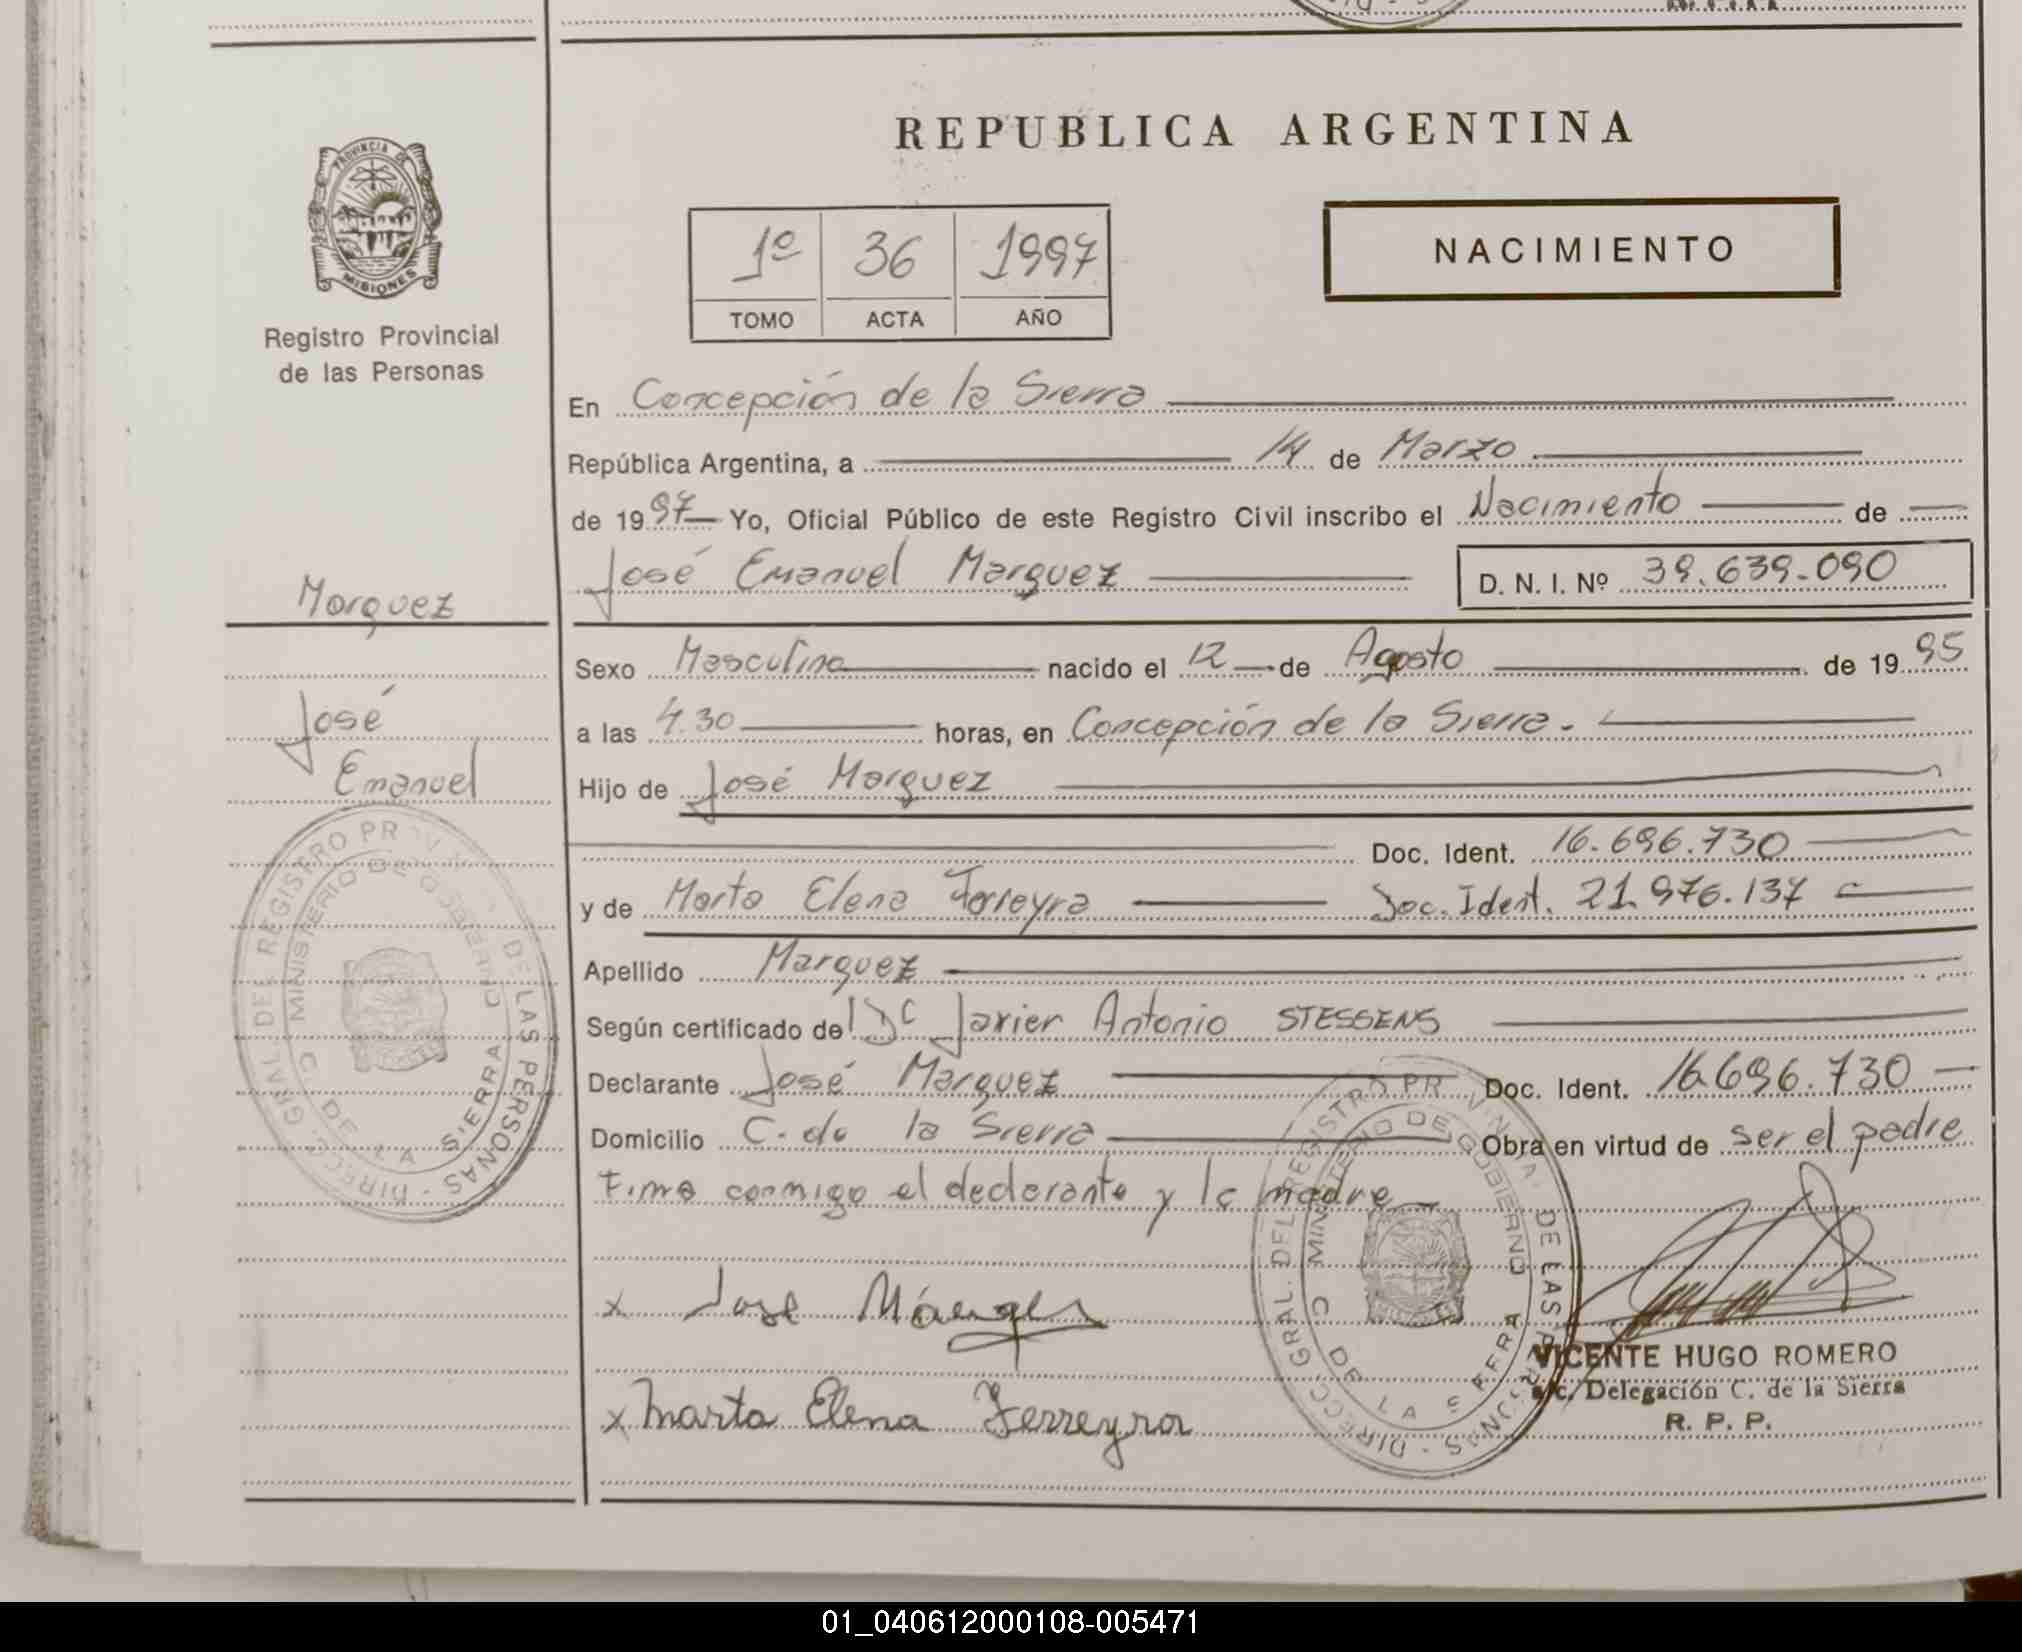 REPUBLICA ARGENTINA
PROVINCIA DE
MISIONES
Registro Provincial
de las Personas
1º 36 1997
TOMO ACTA AÑO
NACIMIENTO
En Concepción de la Sierra
República Argentina, a 14 de Marzo
de 1997 Yo, Oficial Público de este Registro Civil inscribo el Nacimiento de
José Emanuel Marquez D. N. I. Nº 39.639.090
Marquez
José
Emanuel
Sexo Masculino nacido el 12 de Agosto de 1995
a las 4.30 horas, en Concepción de la Sierra.
Hijo de José Marquez
Doc. Ident. 16.696.730
y de Marta Elena Ferreyra Doc. Ident. 21.976.137
Apellido Marquez
Según certificado de Dr Javier Antonio STESSENS
Declarante José Marquez Doc. Ident. 16.696.730
Domicilio C. de la Sierra Obra en virtud de ser el padre
Firma conmigo el declarante y la madre
x Jose Márquez
x Marta Elena Ferreyra
VICENTE HUGO ROMERO
a/c. Delegación C. de la Sierra
R. P. P.
DIRECC. GRAL. DEL REGISTRO PROVINCIAL DE LAS PERSONAS
MINISTERIO DE GOBIERNO
C DE LA SIERRA
DIRECC. GRAL. DEL REGISTRO PROVINCIAL DE LAS PERSONAS
MINISTERIO DE GOBIERNO
C DE LA SIERRA
01_040612000108-005471